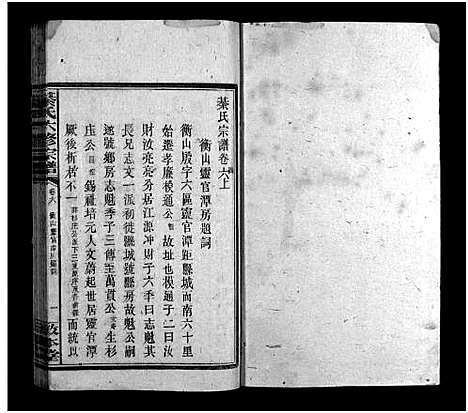 綦氏宗譜卷六上
衡山靈官潭房題詞
衡山殿字六區靈官潭距縣城而南六十里
始遷孝廉模通公故址也模通子二曰汝
財汝亮亮分居江源冲財子六季曰志魁其
長兄志文一派初徙縣城號縣房故魁公嗣
遂號鄉房志魁季子三傳至萬貫公生杉
庄公錫祉培元人文蔚起世居靈官潭
厥後析居不一而統以
綦氏六修宗譜
卷六
一
敦本堂